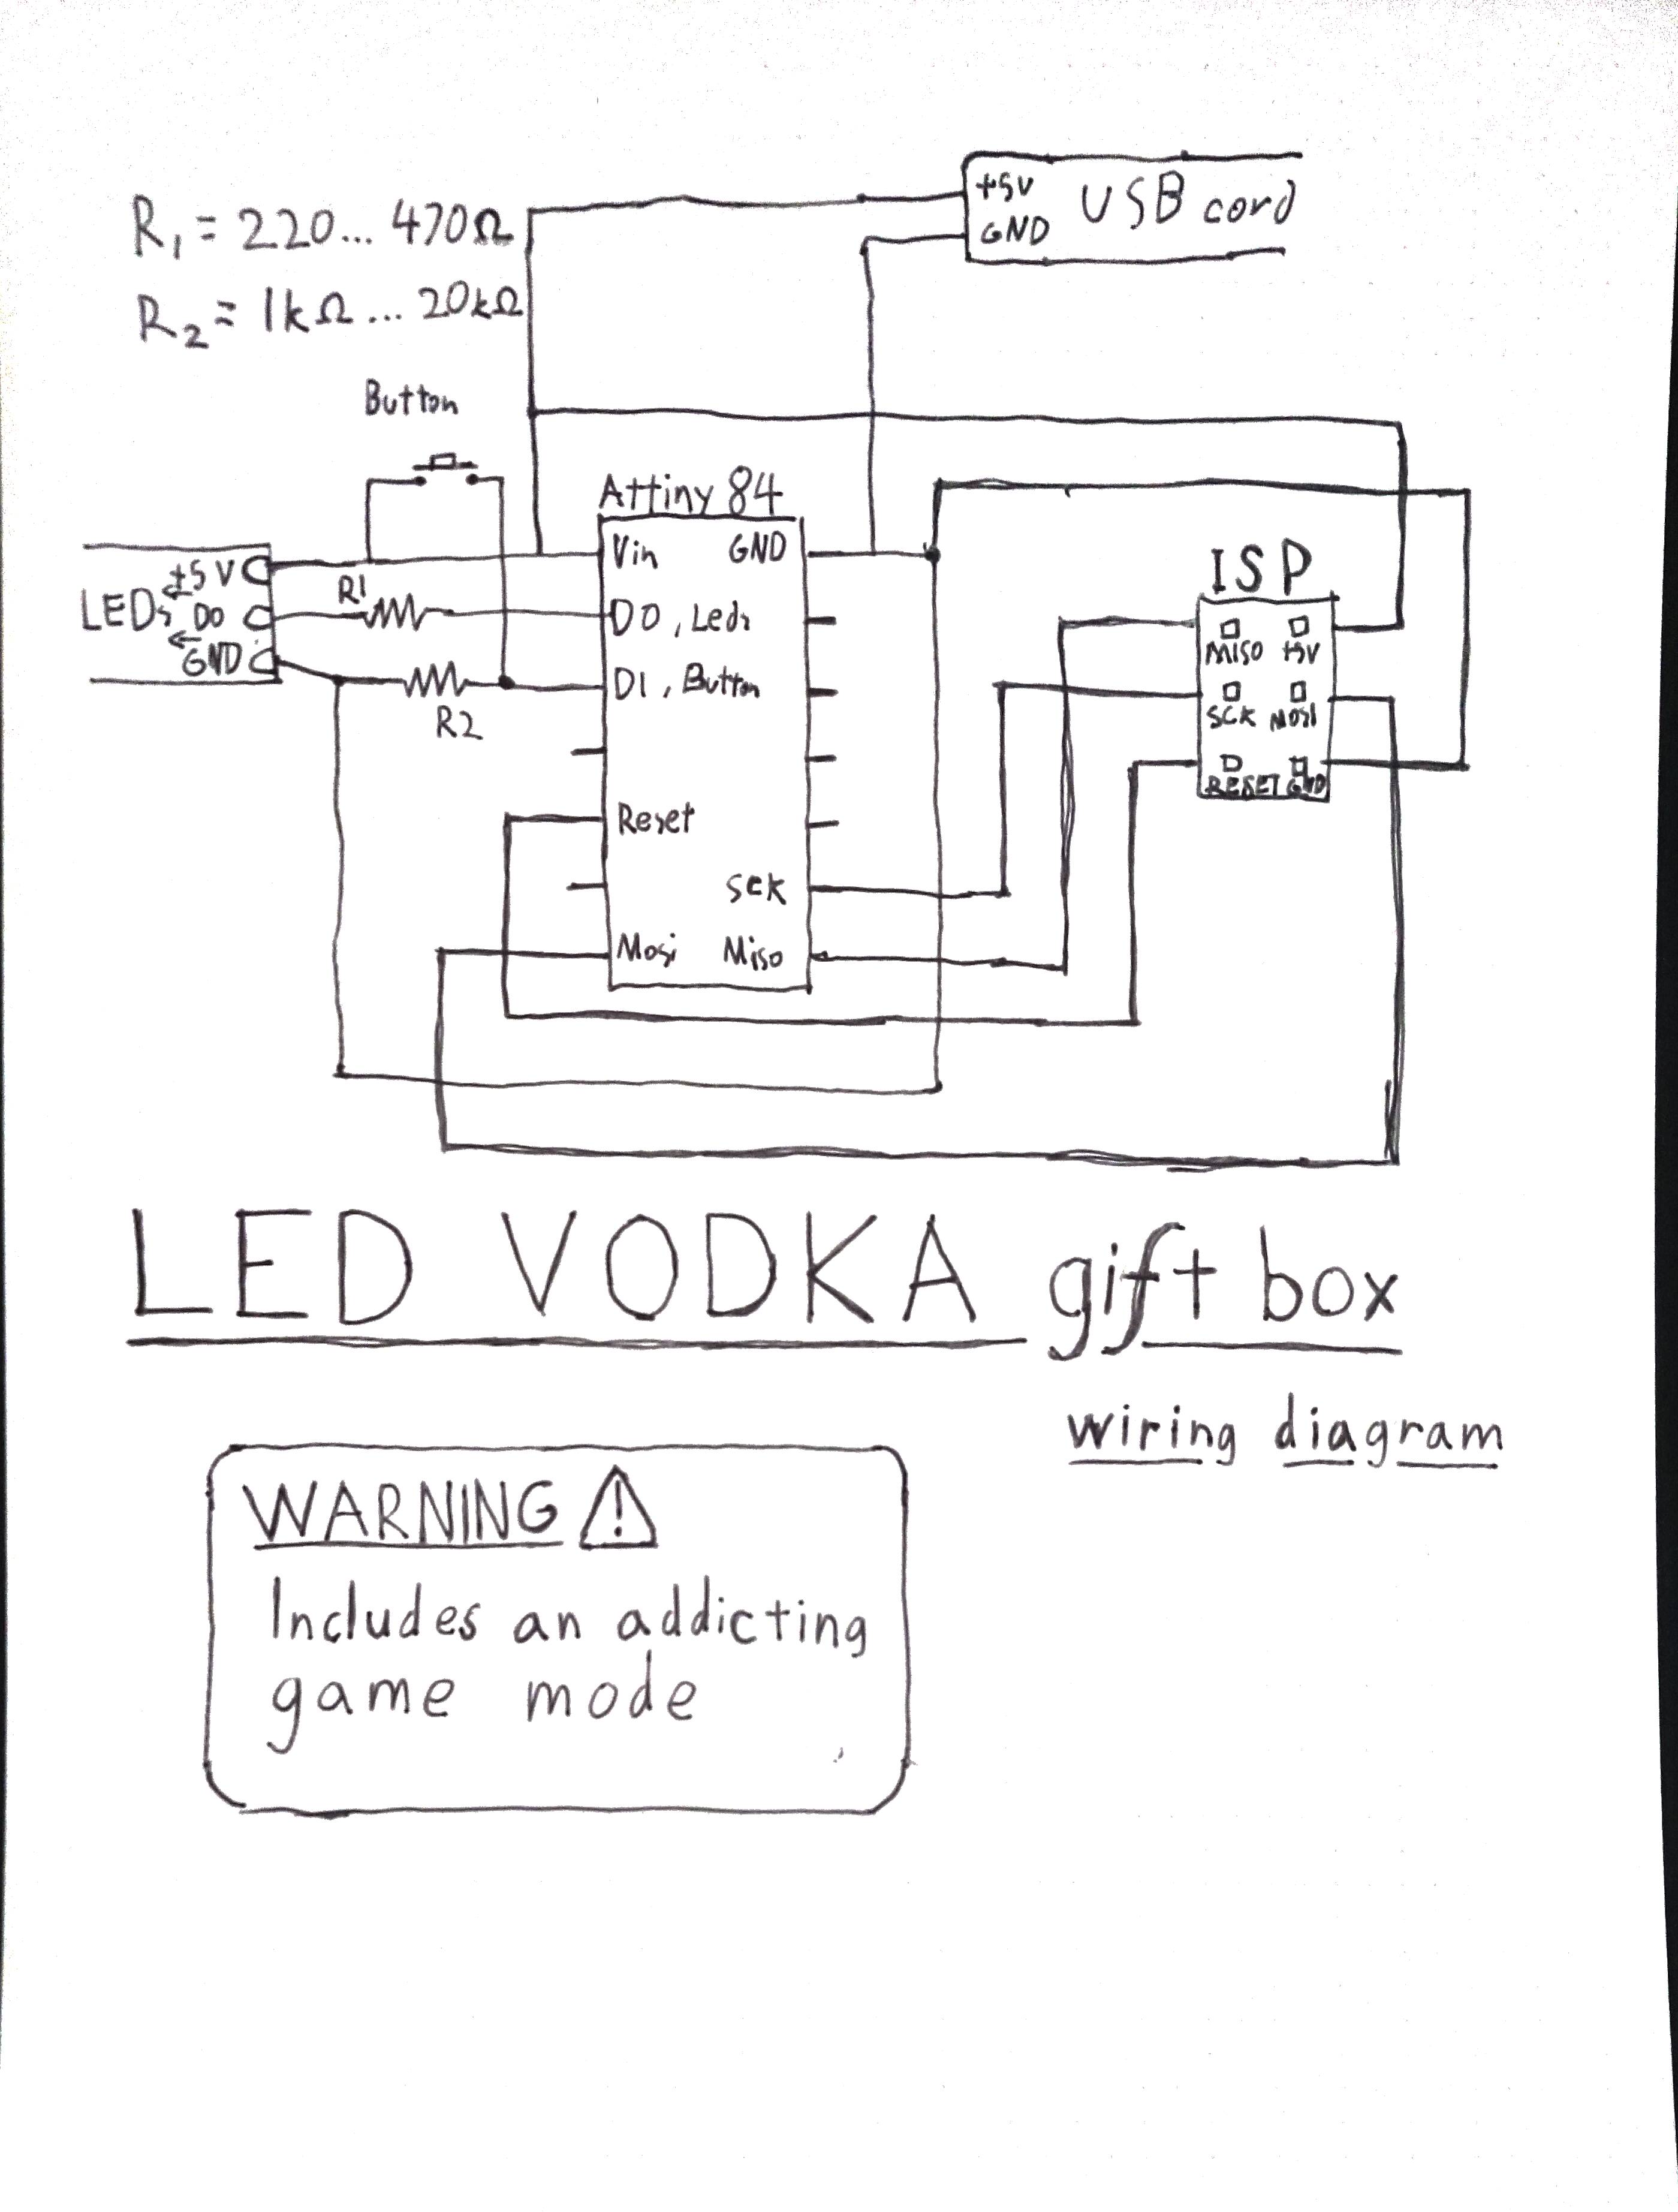 +5V USB cord
GND
R1 = 220... 470Ω
R2 = 1kΩ... 20kΩ
Button
Attiny 84
Vin GND
ISP
+5V
LEDs DO
GND
R1
DO, Leds
MISO +5V
D1, Button
R2
SCK MOSI
RESET GND
Reset
SCK
Mosi Miso
LED VODKA gift box
wiring diagram
WARNING ⚠
Includes an addicting
game mode